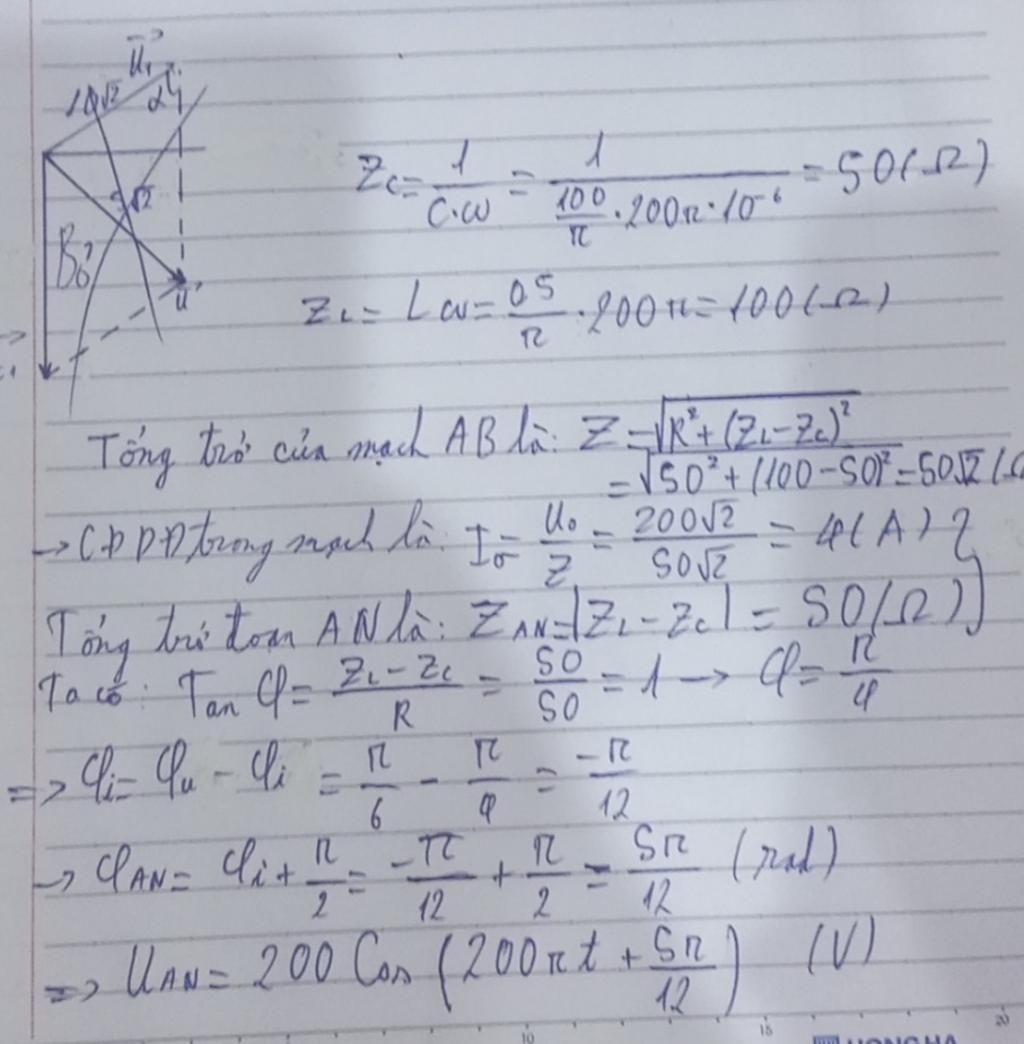 U₁
10√2
α
5√2
Bỏ
u
Z_C = 1/(C.ω) = 1/(100/π . 200π . 10⁻⁶) = 50(Ω)
Z_L = Lω = 05/π . 200π = 100(Ω)
Tổng trở của mạch AB là: Z = √(R² + (Z_L - Z_C)²)
= √(50² + (100 - 50)²) = 50√2 (Ω
→ CĐDĐ trong mạch là: I₀ = U₀/Z = 200√2/50√2 = 4(A)
Tổng trở đoạn AN là: Z_AN = |Z_L - Z_C| = 50(Ω)
Ta có: Tan φ = (Z_L - Z_C)/R = 50/50 = 1 → φ = π/4
=> φi = φu - φi = π/6 - π/4 = -π/12
→ φAN = φi + π/2 = -π/12 + π/2 = 5π/12 (rad)
=> UAN = 200 Cos (200πt + 5π/12) (V)
10 15 20
HONG HA